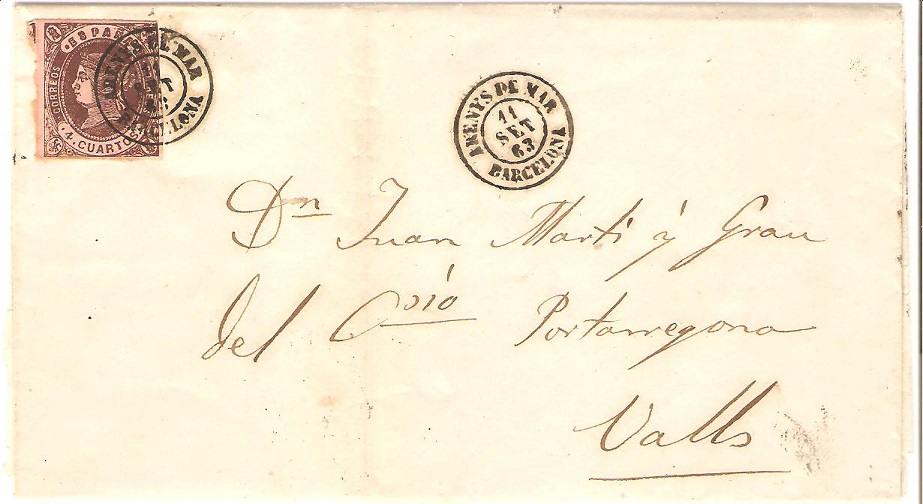 ESPAÑA
CORREOS
4 CUARTOS
ARENYS DE MAR
BARCELONA
ARENYS DE MAR
11
SET
63
BARCELONA
Dn Juan Martí ý Grau
del Cosío Portarregona
Valls